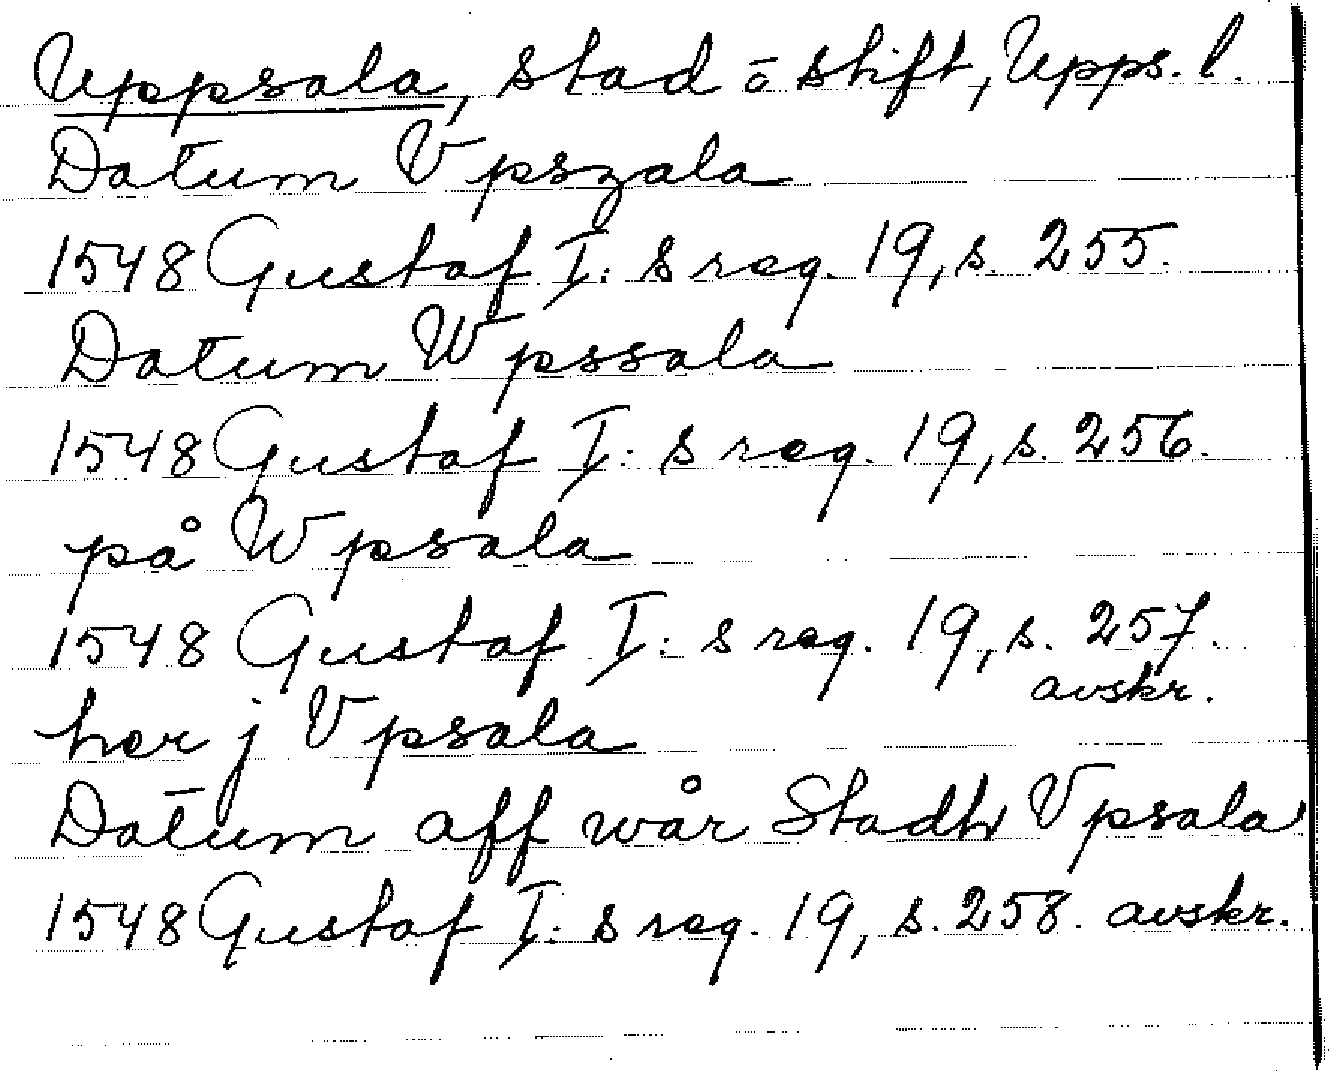 Uppsala, stad o stift, Upps. l.
Datum Vpszala
1548 Gustaf I: s reg. 19, s. 255.
Datum Wpssala
1548 Gustaf I: s reg. 19, s. 256.
på Wpsala
1548 Gustaf I: s reg. 19, s. 257.
avskr.
her j Vpsala
Datum aff wår Stadh Vpsala
1548 Gustaf I: s reg. 19, s. 258. avskr.